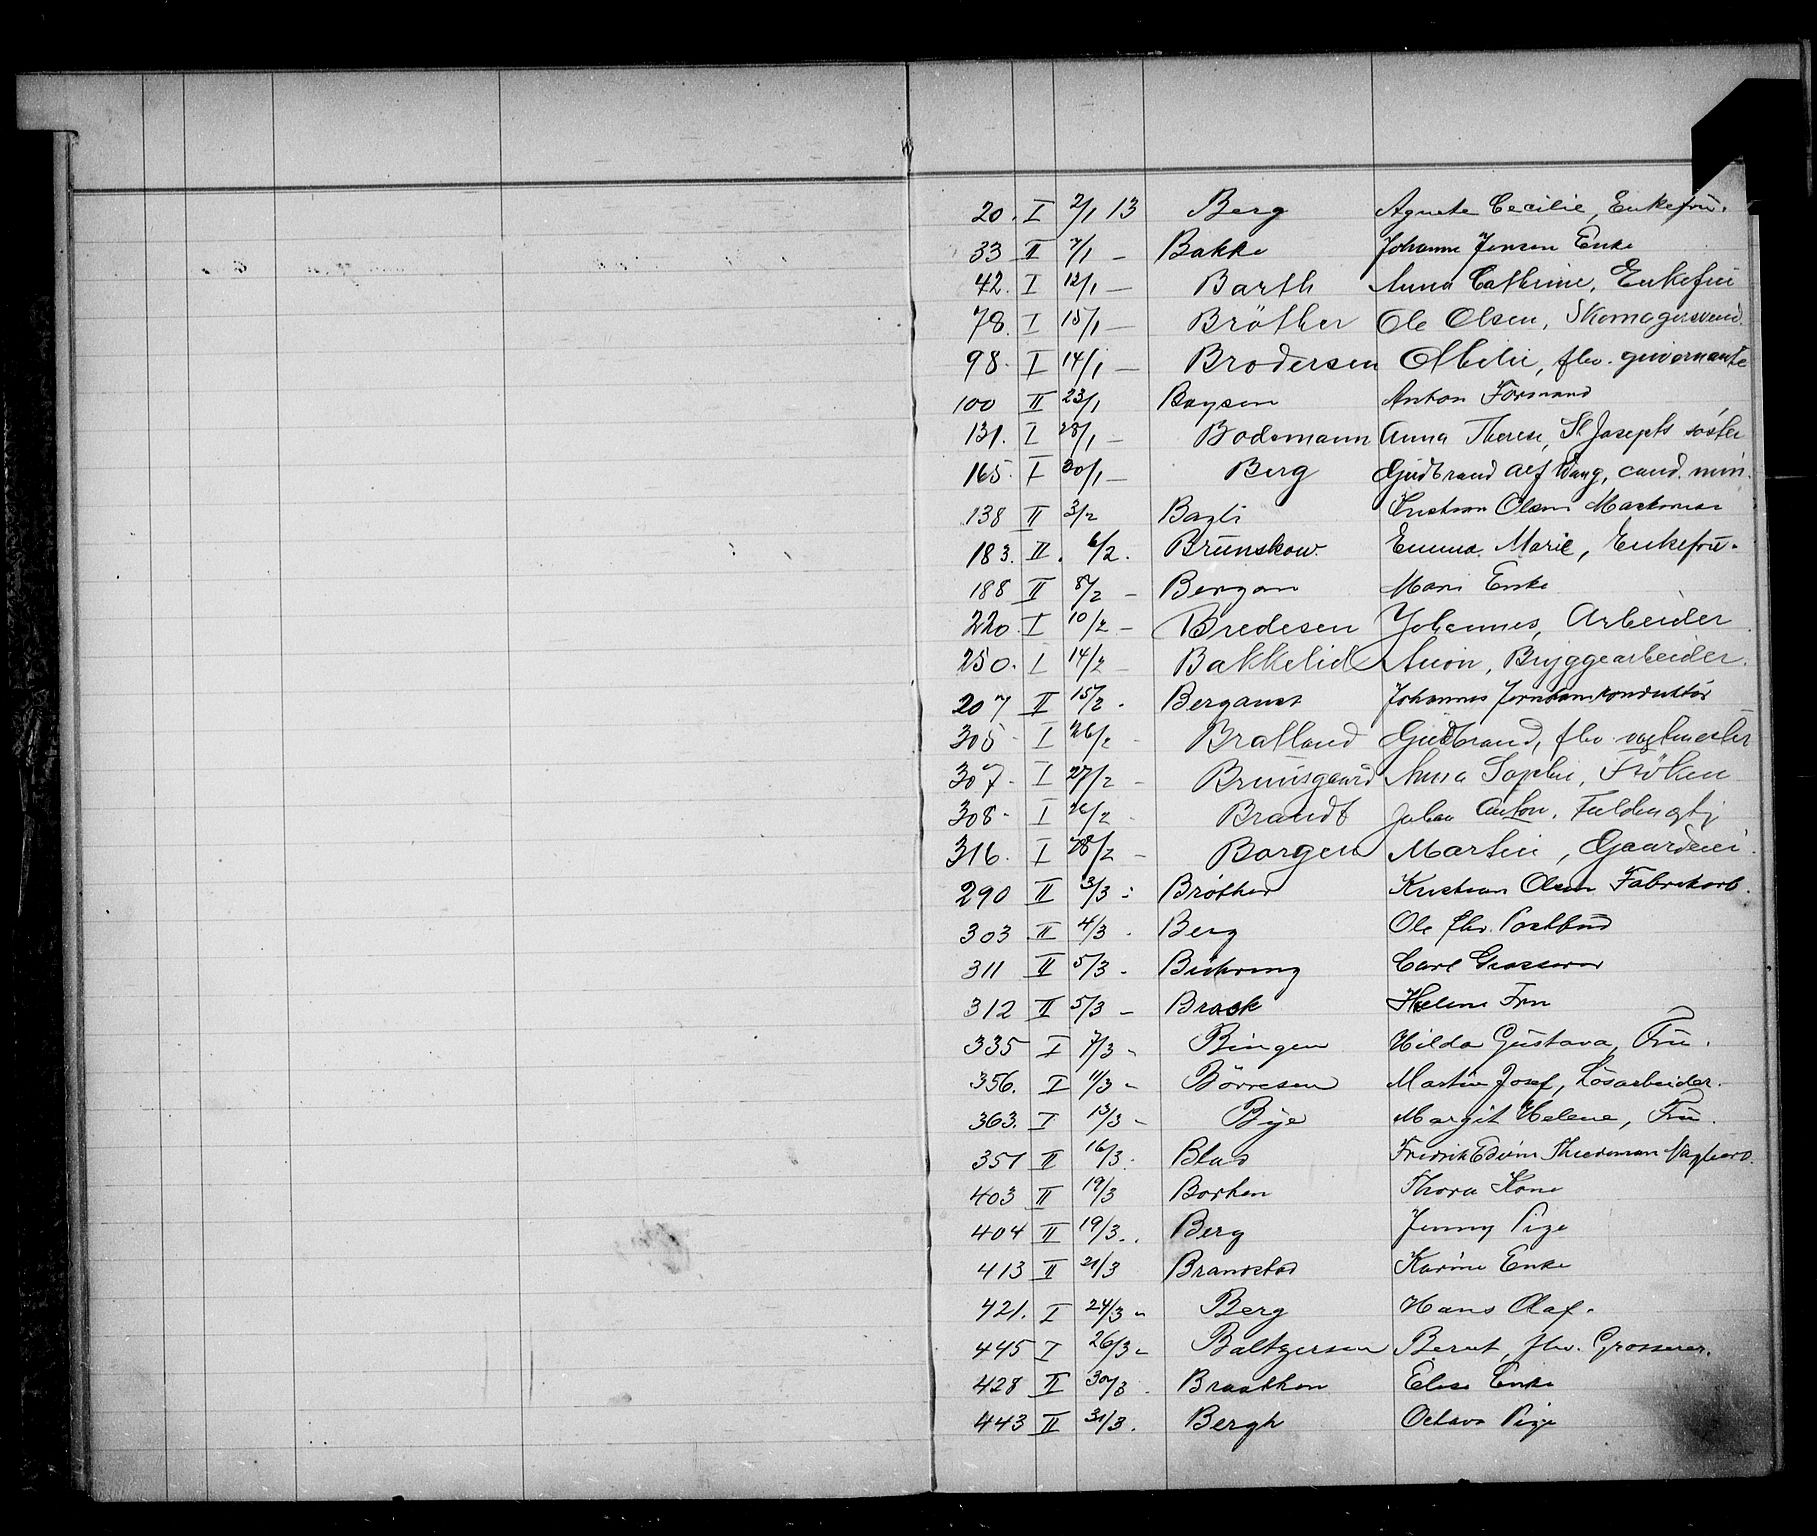 20. I 2/1 13 Berg Agnete Cecilie, Enkefru.
33 II 7/1 — Bakke Johanne Jensen Enke
42. I 12/1 — Barth Anna Cathrine, Enkefru
78. I 15/1 — Bröther Ole Olsen, Skomagersvend.
98. I 14/1 — Brodersen Othelie, fhv. guvernante
100 II 23/1 Boysen Anton Formand
131. I 28/1 — Bodemann Anna Therese, St Josephs söster
165. I 30/1 — Berg Gudbrand Alf Wang, cand. min.
138 II 3/2 Bagli Kristian Olsen
183. II. 6/2. Brunskow. Emma Marie, Enkefru.
188 II 8/2 — Bergan Mari Enke
220. I 10/2 — Bredesen Johannes, Arbeider
250. I 14/2 — Bakkelid Anon, Bryggearbeider.
207 II 15/2. Bergaust Johannes Jernbanekonduktör
305 I 26/2 Bratland Gudbrand, fhv. vagtmester
307. I 27/2 — Bruusgaard Anna Sophie, Fröken
308. I 26/2 Brandt Johan Anton. Fuldmgtg
316. I 28/2 — Borgen Martin, Gaardeier.
290 II 3/3. Bröther Kristian Olsen Fabrikarb.
303 II 4/3. Berg Ole fhv. Postbud
311 II 5/3. Bühring Carl Grosserer
312 II 5/3 — Brock Helene Fru
335 I 7/3 " Bingen Hilda Gustava, Fru.
356. I 11/3 " Börresen Martin Josef, Lösarbeider.
363. I 13/3 " Bye Margit Helene, Fru.
351 II 16/3. Blad Fredrik Edvin Thiedeman
403 II 19/3 Borken Thora Kone
404 II 19/3.. Berg Jenny Pige
413 II 21/3 Brandstad Karine Enke
421. I 24/3 " Berg Hans Olaf.
445 I 26/3 " Baltzersen Bernt, fhv. Grosserer.
428 II 30/3. Braathen Elise Enke
443 II 31/3. Bergh Octava Pige